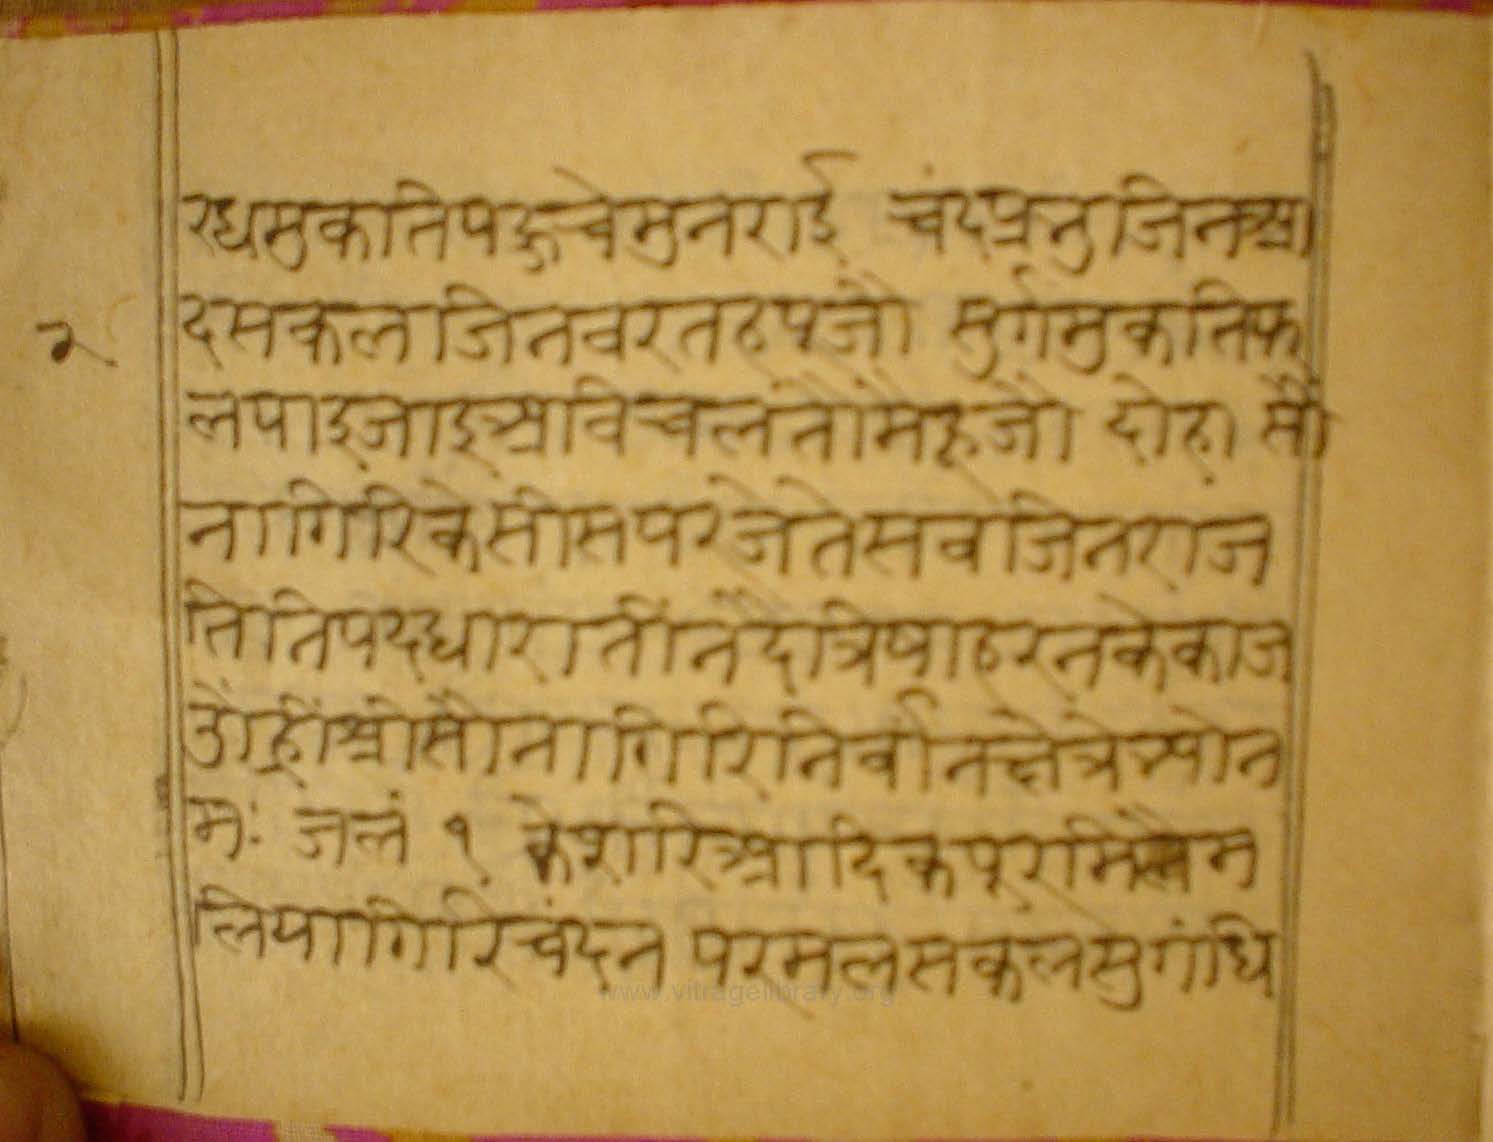 रधमुकातिपहुचेमुनराई चंदप्रभुजिनआ
२
दसकलजिनवरतहपूजौ सुर्गमुकतिफ
लपाइजाइअविचलतौमेहूजौ दोहा सौ
नागिरिकेसीसपरजेतेसवजिनराज
तिनिपदधारातीनदैत्रिषाहरनकेकाज
उौंह्रींश्रीसौनागिरिनिर्वानक्षेत्रेभ्योन
मः जलं १ केशरिआदिकपूरमिलैम
लियागिरिचंदन परमलसकलसुगंधि
www.vitragelibrary.org